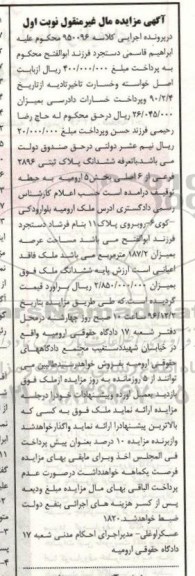 آگهی مزایده مال غیرمنقول نوبت اول
درپرونده اجرایی کلاسه ۹۵۰۰۹۶ محکوم علیه
ابراهیم قاسمی دستجرد فرزند ابوالفتح محکوم
به پرداخت مبلغ ۴۰۰/۰۰۰/۰۰۰ ریال ازبابت
اصل خواسته وخسارت تاخیرتادیه ازتاریخ
۹۰/۲/۴ وپرداخت خسارات دادرسی بمیزان
۲۶/۰۴۵/۰۰۰ ریال درحق محکوم له حاج رضا
رحیمی فرزند حسن وپرداخت مبلغ ۲۰/۰۰۰/۰۰۰
ریال نیم عشر دولتی درحق صندوق دولت
می باشدباتعرفه ششدانگ پلاک ثبتی ۲۸۹۶
فرعی از ۶ اصلی بخش ۵ ارومیه به حیطه
توقیف درآمده است حسب اعلام کارشناس
رسمی دادگستری آدرس ملک ارومیه بلوارودکی
کوی ۶ روبروی پلاک ۱۱ بنام فرشاد دستجرد
فرزند ابوالفتح می باشد مساحت عرصه
بمیزان ۱۸۷/۲ مترمربع می باشد ملک فاقد
اعیانی است ارزش پایه ششدانگ ملک فوق
بمیزان ۲/۸۵۰/۰۰۰/۰۰۰ ریال برآورد قیمت
گردیده است که طی طریق مزایده بتاریخ
۹۶/۱۲/۲ ساعت ۱۱ صبح روز چهارشنبه درمحل
دفتر شعبه ۱۷ دادگاه حقوقی ارومیه واقع
در خیابان شهیدبستغیب مجتمع دادگاههای
حقوقی ارومیه بفروش خواهدرسیدطالبین می
توانند از ۵ روزمانده به روز مزایده ازملک فوق
بازدید بعمل آورده وپیشنهادات خودرا درجلسه
مزایده ارائه نماید ملک فوق به کسی که
بالاترین پیشنهادرا ارائه نماید واگذارخواهدشد
وازبرنده مزایده ۱۰ درصد بعنوان پیش پرداخت
فی المجلس اخذ وبرای مابقی بهای مزایده
فرصت یکماهه خواهدداشت درصورت عدم
پرداخت الباقی بهای مال مزایده مبلغ ودیعه
پس از کسر هزینه های اجرائی بنفع دولت
ضبط خواهدشد.۱۸۲۰
عسکراوغلی- مدیراجرای احکام مدنی شعبه ۱۷
دادگاه حقوقی ارومیه